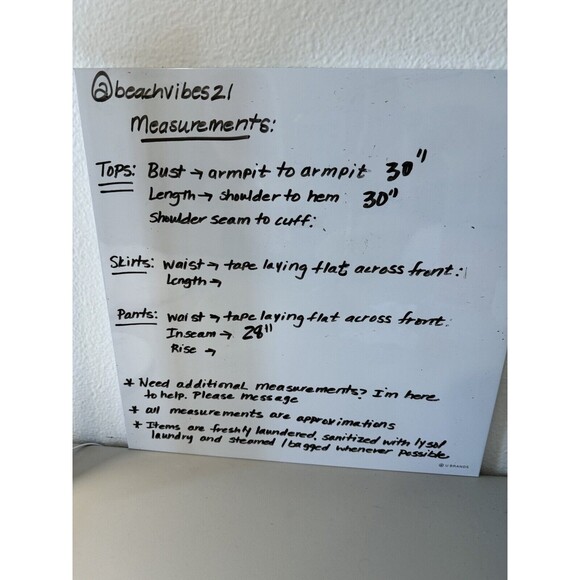 @beachvibes21
Measurements:
Tops: Bust → armpit to armpit 30"
Length → shoulder to hem 30"
Shoulder seam to cuff:
Skirts: waist → tape laying flat across front:
Length →
Pants: waist → tape laying flat across front:
Inseam → 28"
Rise →
* Need additional measurements? I'm here
to help. Please message
* all measurements are approximations
* Items are freshly laundered, sanitized with lysol
laundry and steamed / bagged whenever possible
U BRANDS